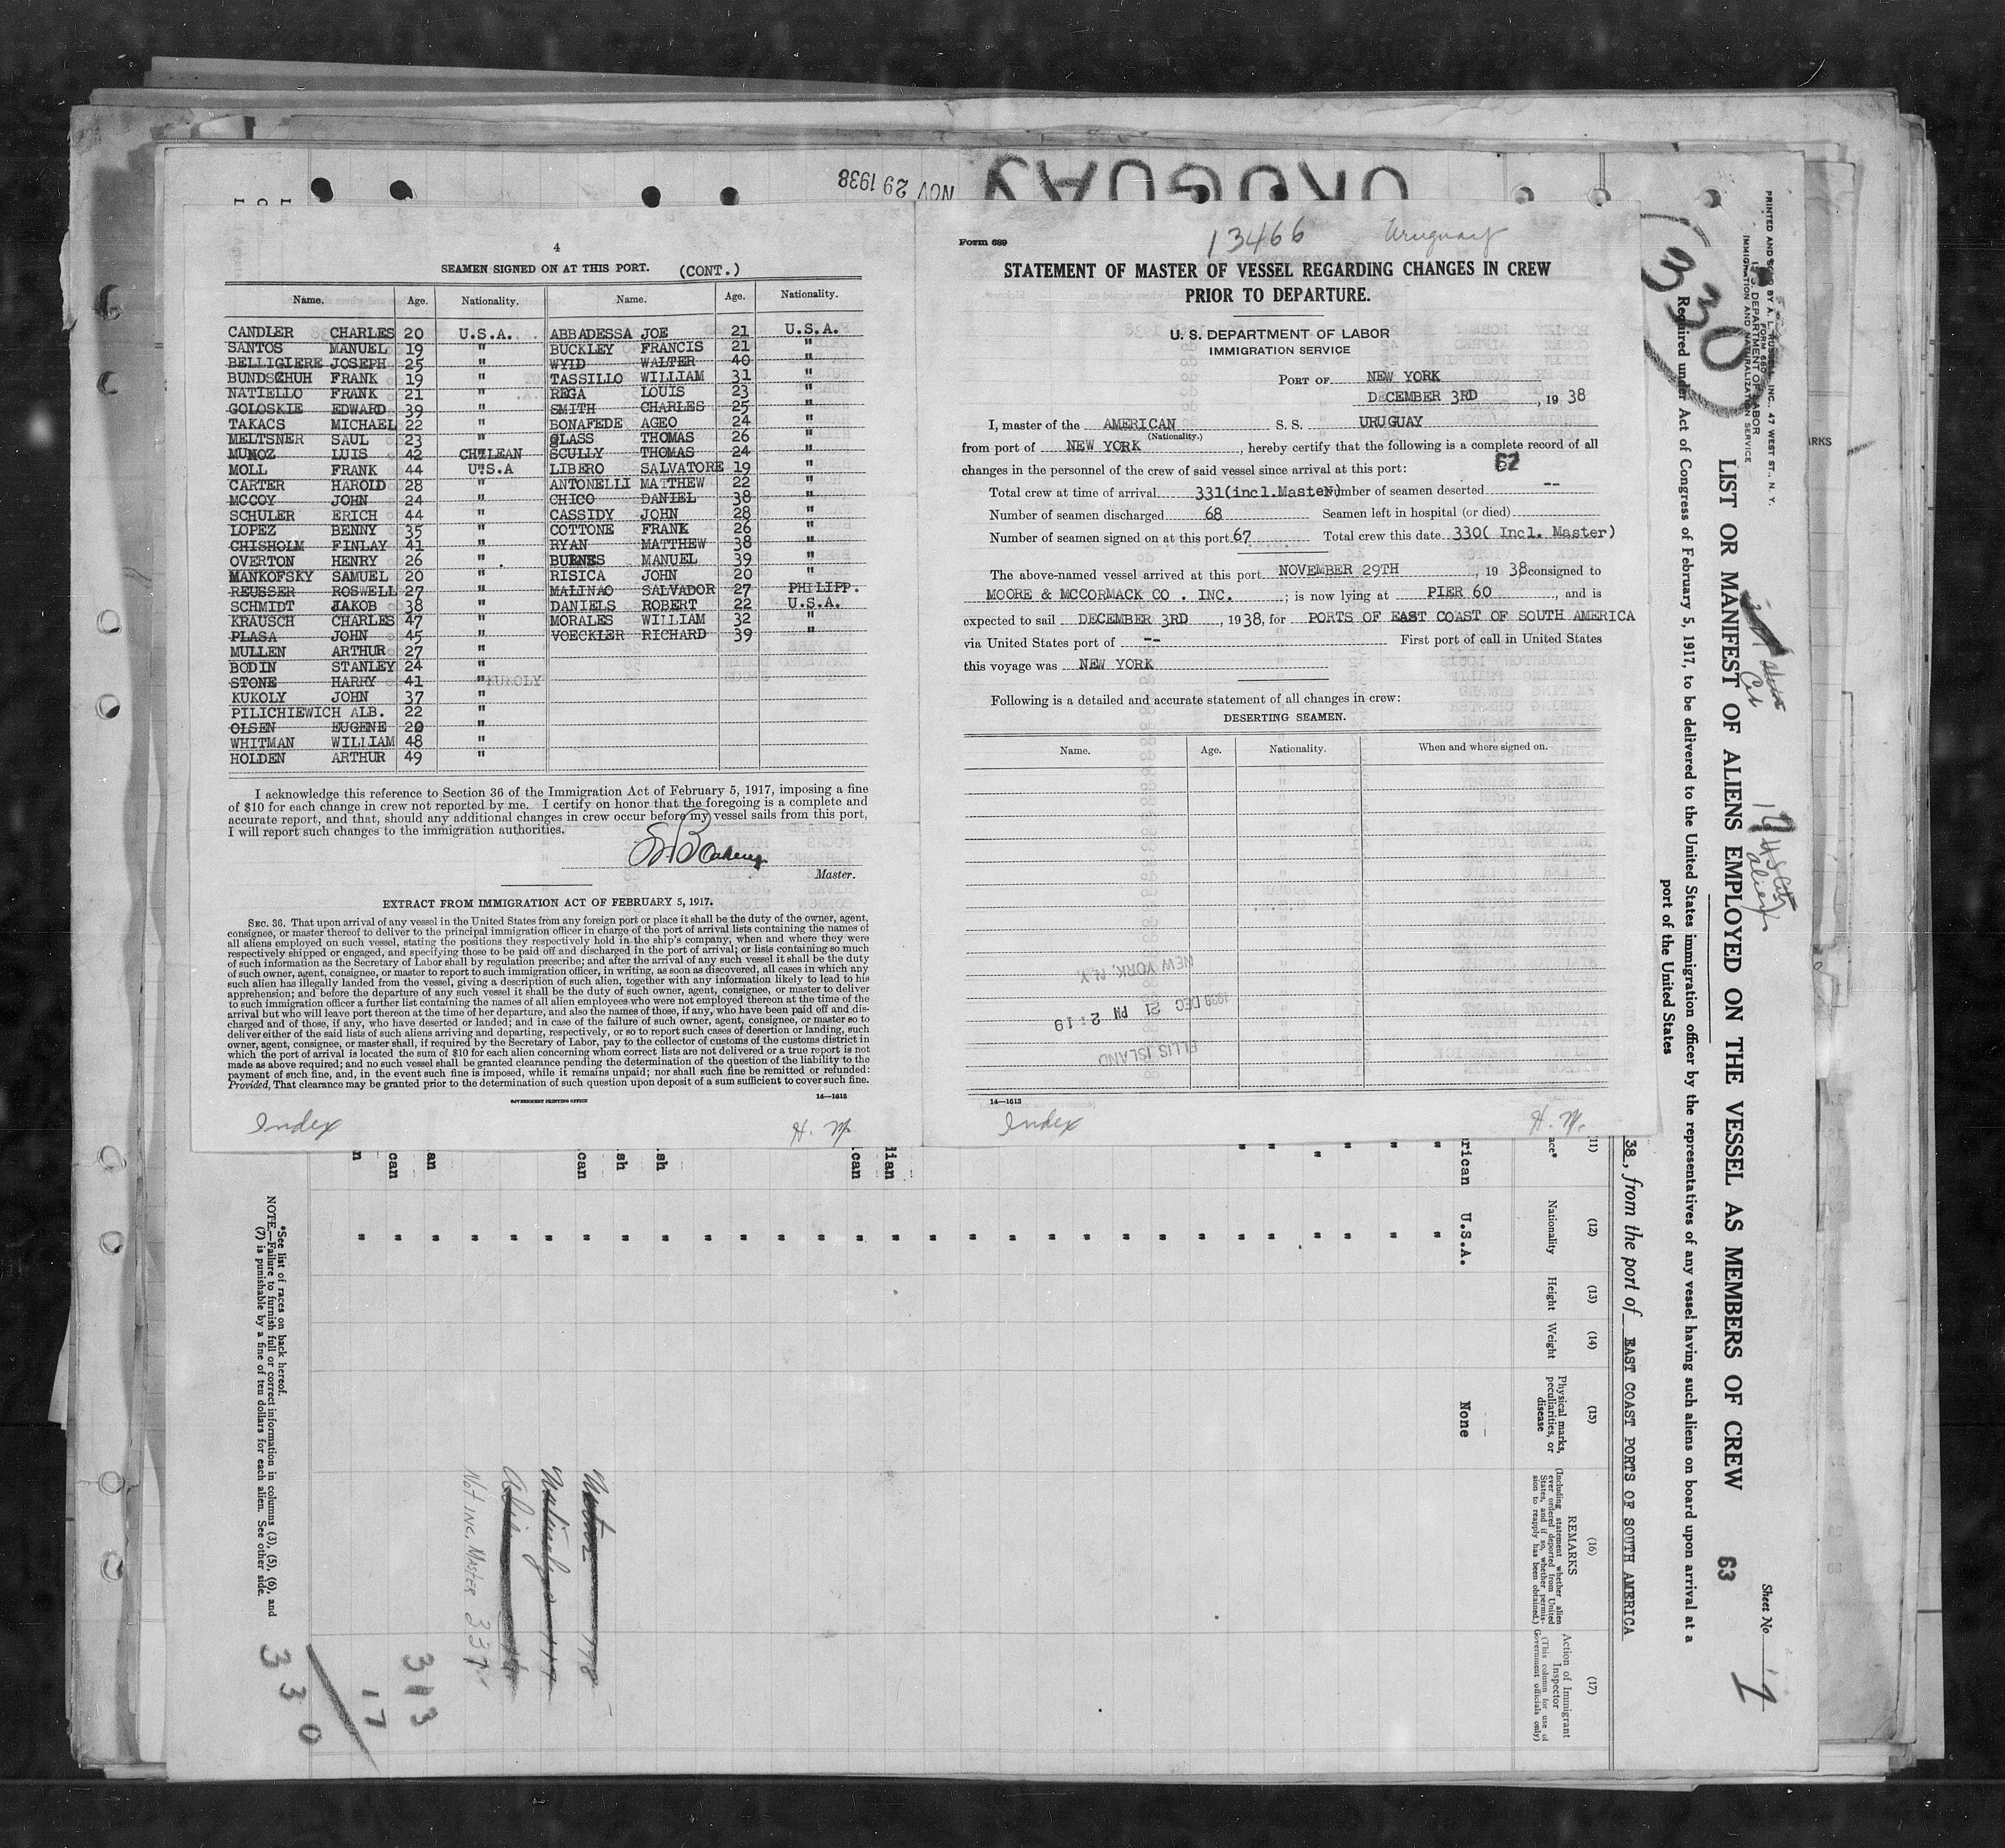 URUGUAY
NOV 29 1938
4
SEAMEN SIGNED ON AT THIS PORT. (CONT.)
Name. Age. Nationality. Name. Age. Nationality.
CANDLER CHARLES 20 U.S.A. ABBADESSA JOE 21 U.S.A.
SANTOS MANUEL 19 " BUCKLEY FRANCIS 21 "
BELLIGIERE JOSEPH 25 " WYID WALTER 40 "
BUNDSCHUH FRANK 19 " TASSILLO WILLIAM 31 "
NATIELLO FRANK 21 " REGA LOUIS 23 "
GOLOSKIE EDWARD 39 " SMITH CHARLES 25 "
TAKACS MICHAEL 22 " BONAFEDE AGEO 24 "
MELTSNER SAUL 23 " GLASS THOMAS 26 "
MUNOZ LUIS 42 CHILEAN SCULLY THOMAS 24 "
MOLL FRANK 44 U.S.A LIBERO SALVATORE 19 "
CARTER HAROLD 28 " ANTONELLI MATTHEW 22 "
MCCOY JOHN 24 " CHICO DANIEL 38 "
SCHULER ERICH 44 " CASSIDY JOHN 28 "
LOPEZ BENNY 35 " COTTONE FRANK 26 "
CHISHOLM FINLAY 41 " RYAN MATTHEW 38 "
OVERTON HENRY 26 " BURNES MANUEL 39 "
MANKOFSKY SAMUEL 20 " RISICA JOHN 20 "
REUSSER ROSWELL 27 " MALINAO SALVADOR 27 PHILIPP.
SCHMIDT JAKOB 38 " DANIELS ROBERT 22 U.S.A.
KRAUSCH CHARLES 47 " MORALES WILLIAM 32 "
PLASA JOHN 45 " VOECKLER RICHARD 39 "
MULLEN ARTHUR 27 "
BODIN STANLEY 24 "
STONE HARRY 41 " KUKOLY
KUKOLY JOHN 37 "
PILICHIEWICH ALB. 22 "
OLSEN EUGENE 20 "
WHITMAN WILLIAM 48 "
HOLDEN ARTHUR 49 "
I acknowledge this reference to Section 36 of the Immigration Act of February 5, 1917, imposing a fine
of $10 for each change in crew not reported by me. I certify on honor that the foregoing is a complete and
accurate report, and that, should any additional changes in crew occur before my vessel sails from this port,
I will report such changes to the immigration authorities.
Master.
EXTRACT FROM IMMIGRATION ACT OF FEBRUARY 5, 1917.
SEC. 36. That upon arrival of any vessel in the United States from any foreign port or place it shall be the duty of the owner, agent,
consignee, or master thereof to deliver to the principal immigration officer in charge of the port of arrival lists containing the names of
all aliens employed on such vessel, stating the positions they respectively hold in the ship's company, when and where they were
respectively shipped or engaged, and specifying those to be paid off and discharged in the port of arrival; or lists containing so much
of such information as the Secretary of Labor shall by regulation prescribe; and after the arrival of any such vessel it shall be the duty
of such owner, agent, consignee, or master to report to such immigration officer, in writing, as soon as discovered, all cases in which any
such alien has illegally landed from the vessel, giving a description of such alien, together with any information likely to lead to his
apprehension; and before the departure of any such vessel it shall be the duty of such owner, agent, consignee, or master to deliver
to such immigration officer a further list containing the names of all alien employees who were not employed thereon at the time of the
arrival but who will leave port thereon at the time of her departure, and also the names of those, if any, who have been paid off and dis-
charged and of those, if any, who have deserted or landed; and in case of the failure of such owner, agent, consignee, or master so to
deliver either of the said lists of such aliens arriving and departing, respectively, or so to report such cases of desertion or landing, such
owner, agent, consignee, or master shall, if required by the Secretary of Labor, pay to the collector of customs of the customs district in
which the port of arrival is located the sum of $10 for each alien concerning whom correct lists are not delivered or a true report is not
made as above required; and no such vessel shall be granted clearance pending the determination of the question of the liability to the
payment of such fine, and, in the event such fine is imposed, while it remains unpaid; nor shall such fine be remitted or refunded:
Provided, That clearance may be granted prior to the determination of such question upon deposit of a sum sufficient to cover such fine.
GOVERNMENT PRINTING OFFICE 14—1613
Index H. M.
Form 689
13466 Uruguay
STATEMENT OF MASTER OF VESSEL REGARDING CHANGES IN CREW
PRIOR TO DEPARTURE.
U. S. DEPARTMENT OF LABOR
IMMIGRATION SERVICE
PORT OF NEW YORK
DECEMBER 3RD, 1938
I, master of the AMERICAN S. S. URUGUAY
(Nationality.)
from port of NEW YORK, hereby certify that the following is a complete record of all
changes in the personnel of the crew of said vessel since arrival at this port: 67
Total crew at time of arrival 331(incl.Master) Number of seamen deserted --
Number of seamen discharged 68 Seamen left in hospital (or died)
Number of seamen signed on at this port 67 Total crew this date 330( Incl. Master)
The above-named vessel arrived at this port NOVEMBER 29TH, 1938, consigned to
MOORE & MCCORMACK CO. INC.; is now lying at PIER 60, and is
expected to sail DECEMBER 3RD, 1938, for PORTS OF EAST COAST OF SOUTH AMERICA
via United States port of -- First port of call in United States
this voyage was NEW YORK
Following is a detailed and accurate statement of all changes in crew:
DESERTING SEAMEN.
Name. Age. Nationality. When and where signed on.
NEW YORK, N.Y.
1938 DEC 21 PM 2:19
ELLIS ISLAND
14—1613
Index H. M.
330
PRINTED AND SOLD BY A. L. RUSSELL, INC., 47 WEST ST., N. Y.
FORM 680
U. S. DEPARTMENT OF LABOR
IMMIGRATION AND NATURALIZATION SERVICE
Sheet No. 1
LIST OR MANIFEST OF ALIENS EMPLOYED ON THE VESSEL AS MEMBERS OF CREW 63
Required under Act of Congress of February 5, 1917, to be delivered to the United States immigration officer by the representatives of any vessel having such aliens on board upon arrival at a
port of the United States
38, from the port of EAST COAST PORTS OF SOUTH AMERICA
(11) (12) (13) (14) (15) (16) (17)
Nationality Height Weight Physical marks, peculiarities, or disease
REMARKS
(Including statement whether alien
ever ordered deported from United
States, and if so, whether permis-
sion to reapply has been obtained.)
Action of Immigrant
Inspector
(This column for use of
Government officials only)
rican U.S.A. None
NOT INC. MASTER
313
17
330
*See list of races on back hereof.
NOTE.—Failure to furnish full or correct information in columns (3), (5), (6), and
(7) is punishable by a fine of ten dollars for each alien. See other side.